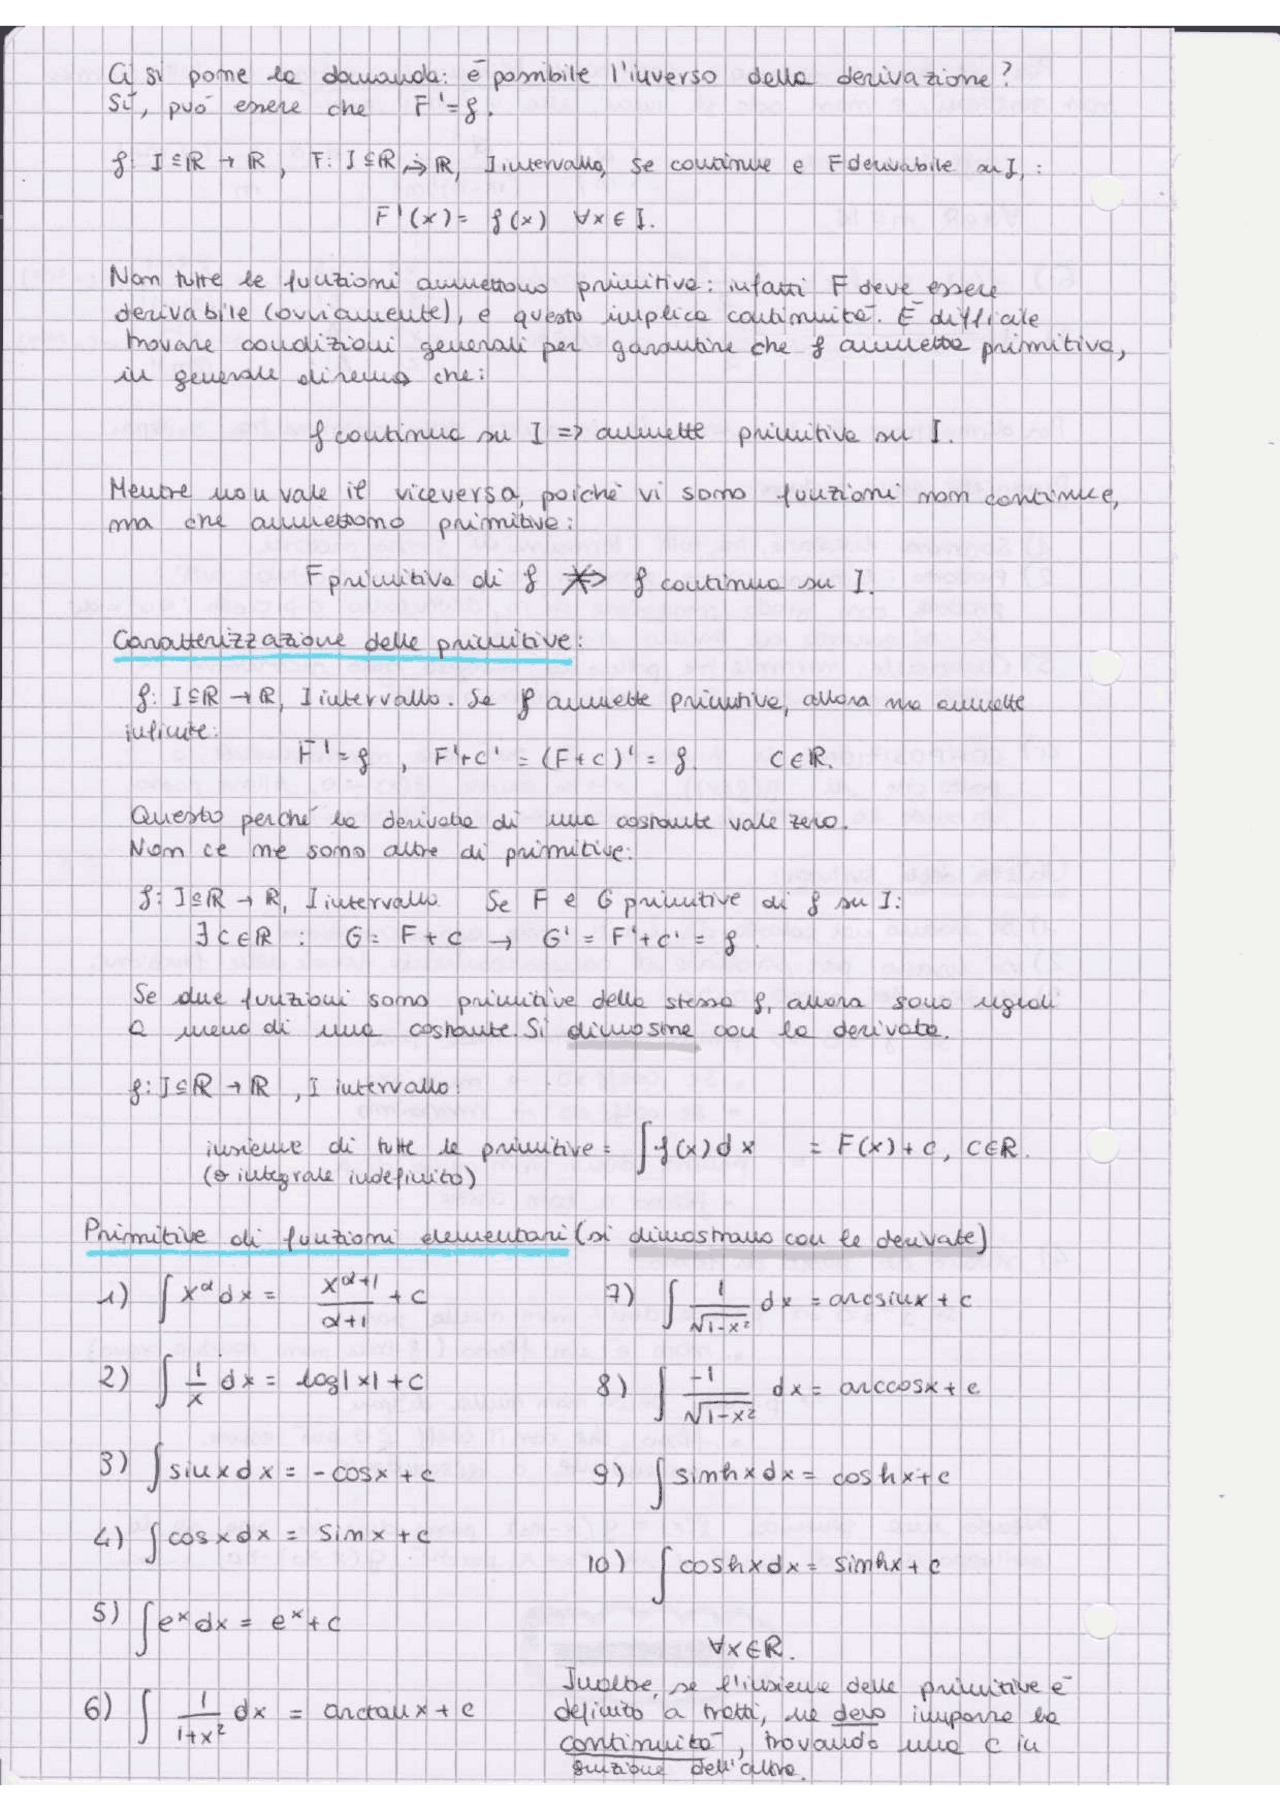 Ci si pone la domanda: è possibile l'inverso della derivazione?
Sì, può essere che F' = f.
f: I ⊆ ℝ → ℝ, F: I ⊆ ℝ → ℝ, I intervallo, se continue e F derivabile su I, :
F'(x) = f(x) ∀x ∈ I.
Non tutte le funzioni ammettono primitive: infatti F deve essere
derivabile (ovviamente), e questo implica continuità. È difficile
trovare condizioni generali per garantire che f ammetta primitiva,
in generale diremo che:
f continua su I => ammette primitiva su I.
Mentre non vale il viceversa, poiché vi sono funzioni non continue,
ma che ammettono primitive:
F primitiva di f ⇏ f continua su I.
Caratterizzazione delle primitive:
f: I ⊆ ℝ → ℝ, I intervallo. Se f ammette primitiva, allora ne ammette
infinite:
F' = f , F' + c' = (F + c)' = f. c ∈ ℝ.
Questo perché la derivata di una costante vale zero.
Non ce ne sono altre di primitive:
f: I ⊆ ℝ → ℝ, I intervallo. Se F e G primitive di f su I:
∃ c ∈ ℝ : G = F + c → G' = F' + c' = f.
Se due funzioni sono primitive della stessa f, allora sono uguali
a meno di una costante. Si dimostra con la derivata.
f: I ⊆ ℝ → ℝ, I intervallo:
insieme di tutte le primitive = ∫ f(x) dx = F(x) + c, c ∈ ℝ.
(o integrale indefinito)
Primitive di funzioni elementari (si dimostrano con le derivate)
1) ∫ x^α dx = x^(α+1)/(α+1) + c
2) ∫ 1/x dx = log|x| + c
3) ∫ sinx dx = - cosx + c
4) ∫ cosx dx = sinx + c
5) ∫ e^x dx = e^x + c
6) ∫ 1/(1+x²) dx = arctanx + c
7) ∫ 1/√(1-x²) dx = arcsinx + c
8) ∫ -1/√(1-x²) dx = arccosx + c
9) ∫ sinhx dx = coshx + c
10) ∫ coshx dx = sinhx + c
∀x ∈ ℝ.
Inoltre, se l'insieme delle primitive è
definito a tratti, ne devo imporre la
continuità, trovando una c in
funzione dell'altra.